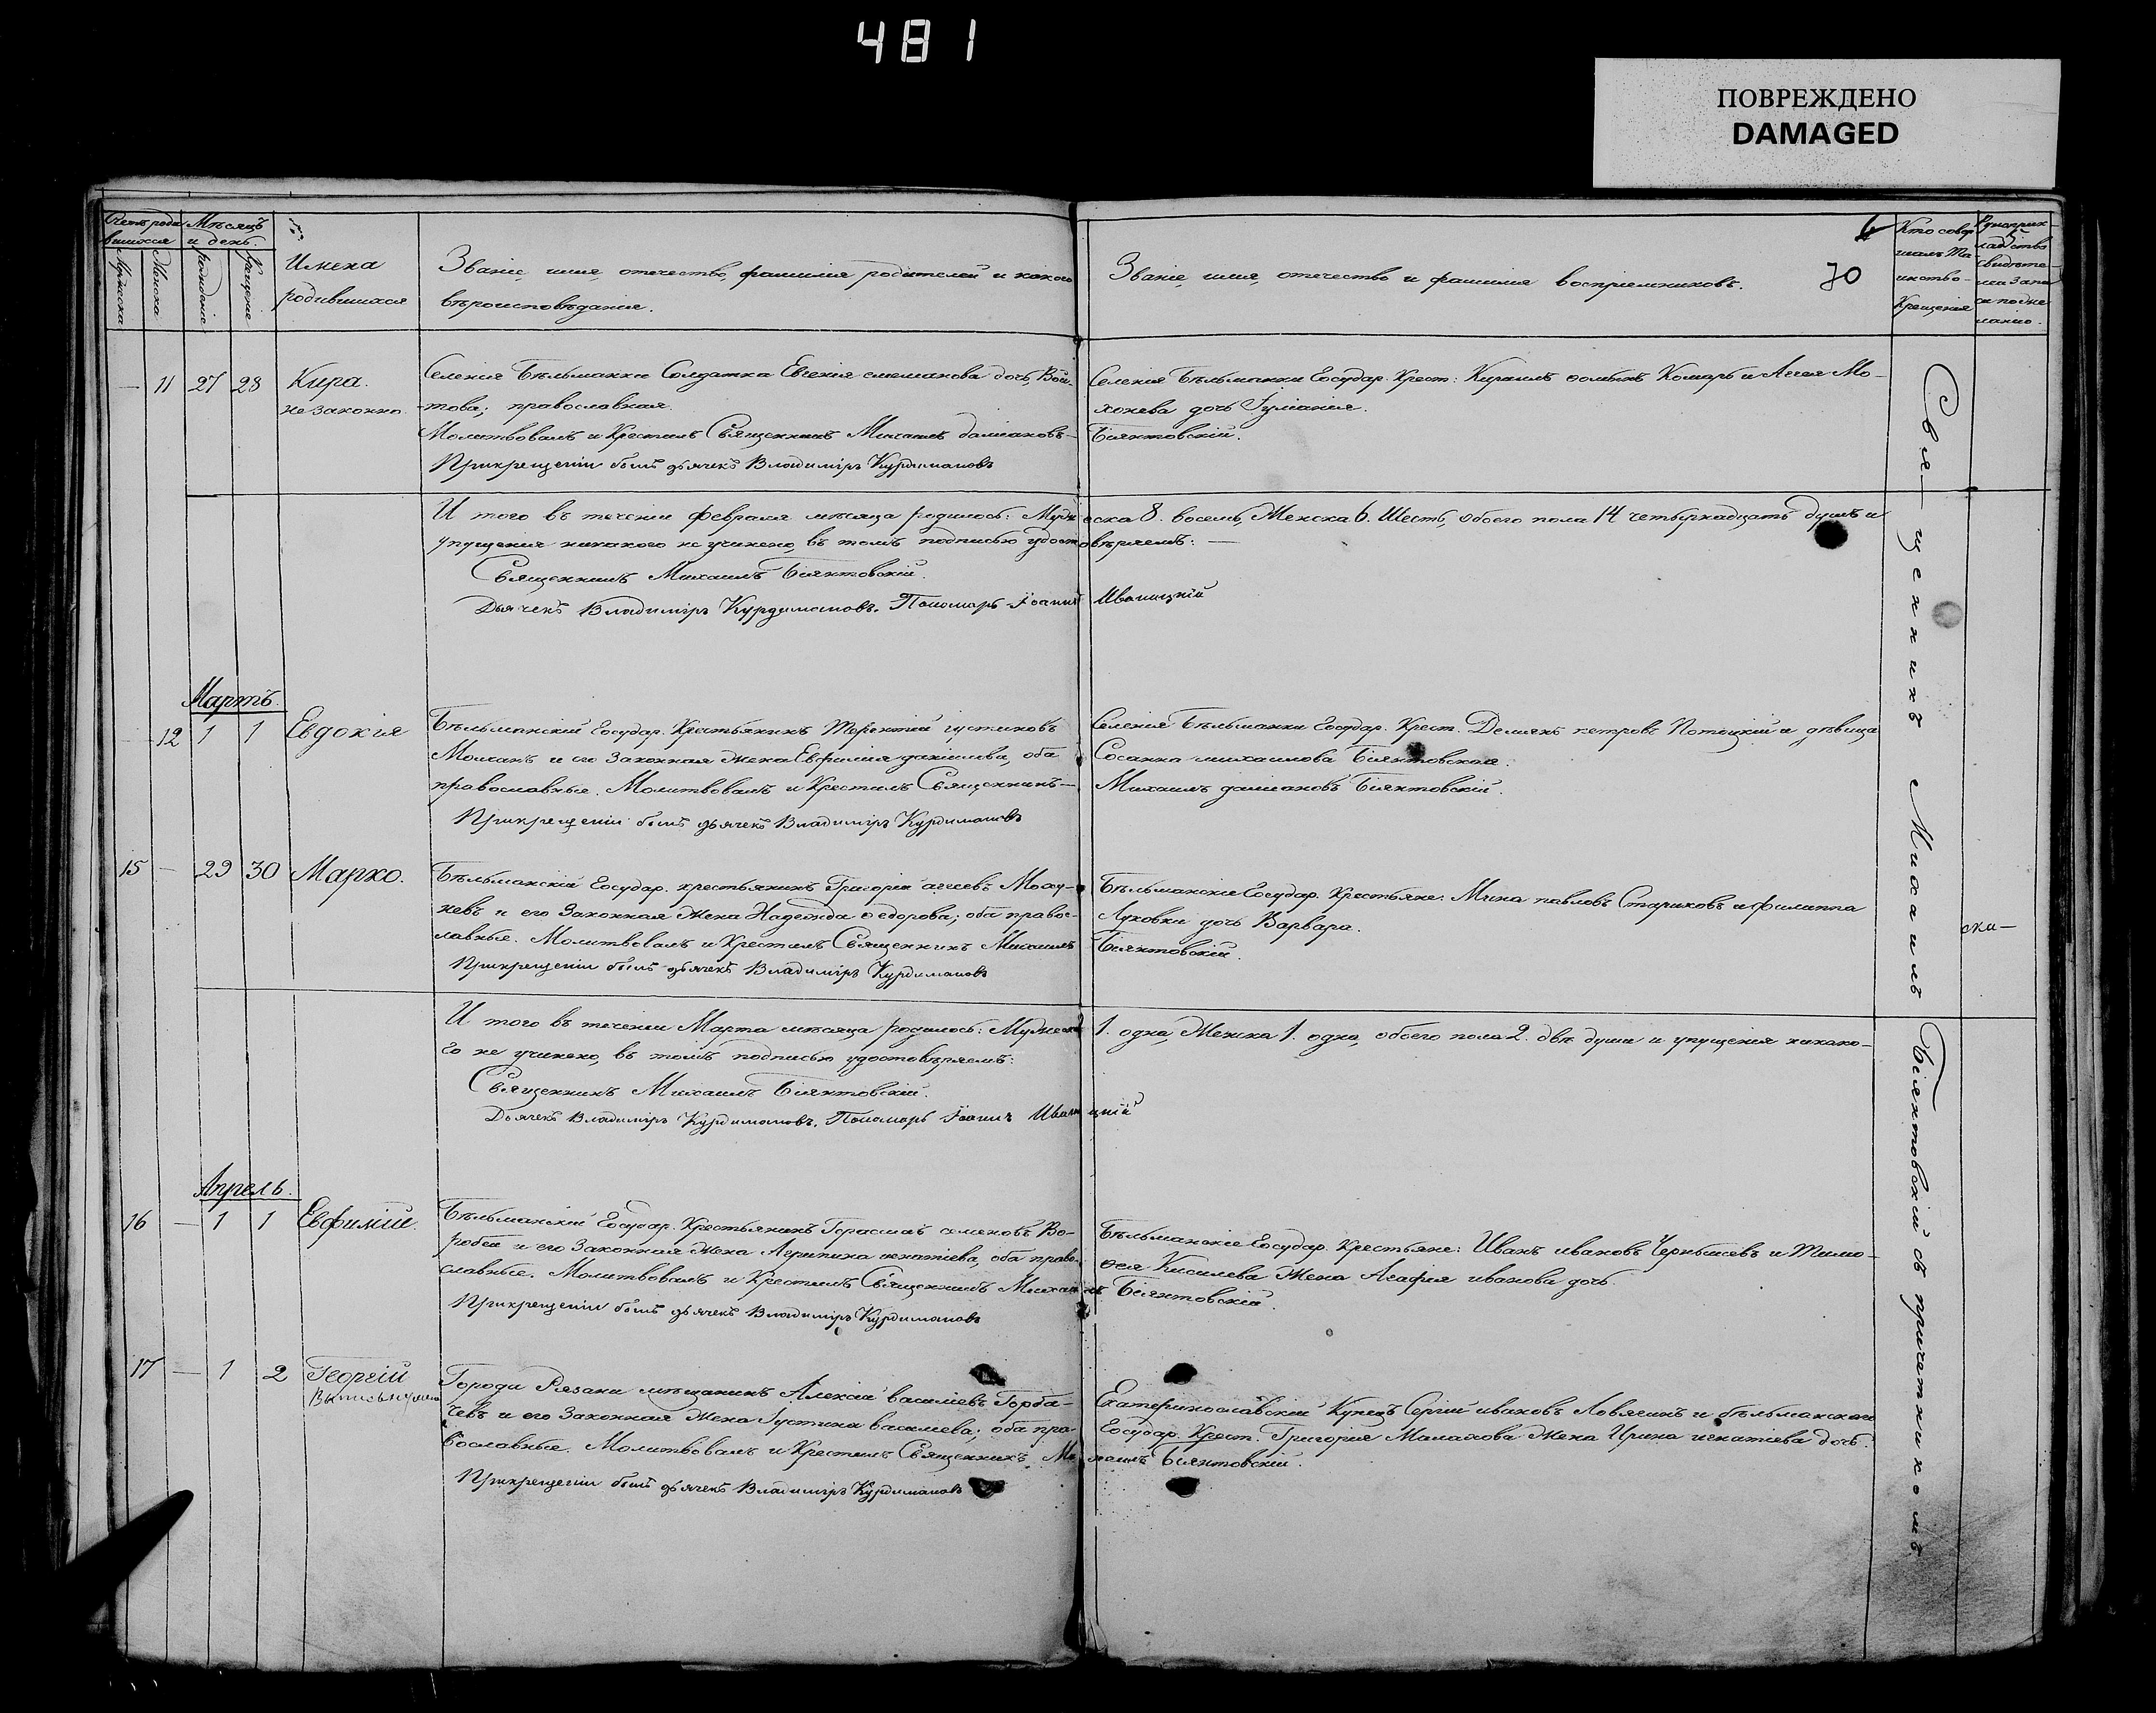 481
ПОВРЕЖДЕНО
DAMAGED
Счетъ роди
вшихся
Мѣсяцъ
и день.
Мужеска
Женска
рожденіе
Крещеніе
Имена
родившихся
Званіе, имя, отечество, фамилія родителей и какого
вѣроисповѣданія.
Званіе, имя, отечество и фамилія воспріемниковъ.
70
Кто совер
шалъ Та
инство
Крещенія
— 11 27 28 Кира.
незаконно.
Селенія Бѣльманки Солдатка Евгенія емеліанова дочь,
това; православная.
Молитвовалъ и Крестилъ Священникъ Михаилъ даміановъ
Прикрещеніи былъ дьячекъ Владиміръ Курдимановъ
Селенія Бѣльманки Государ. Крест: Кирилъ Комарь и
дочь
Біянтовскій.
И того въ теченіи февраля мѣсяца родилось: Мужеска 8. восемь, Женска 6. Шесть, обоего пола 14 четырнадцать душъ и
упущенія никакого не учинено, въ томъ подписью удостовѣряемъ: —
Священникъ Михаилъ Біянтовскій.
Дьячекъ Владиміръ Курдимановъ. Пономарь Іоаннъ Иваницкій
Мартъ.
— 12 1 1 Евдокія
Бѣльманскій Государ. Крестьянинъ Терентій іустиновъ
и его Законная Жена Евфимія даніилова, оба
православные. Молитвовалъ и Крестилъ Священникъ—
Прикрещеніи былъ дьячекъ Владиміръ Курдимановъ
Селенія Бѣльманки Государ. Крест. Деміянъ петровъ Потоцкій и дѣвица
Сосанна михаилова Біянтовская.
Михаилъ даміановъ Біянтовскій.
15 — 29 30 Марко.
Бѣльманскій Государ. крестьянинъ Григорій агеевъ
невъ и его Законная Жена Надежда ѳедорова; оба правос-
лавные. Молитвовалъ и Крестилъ Священникъ Михаилъ
Прикрещеніи былъ дьячекъ Владиміръ Курдимановъ
Бѣльманскіе Государ. Крестьяне: Мина павловъ Стариковъ и филиппа
Луховки дочь Варвара.
Біянтовскій.
И того въ теченіи Марта мѣсяца родилось: Мужеска 1. одна, Женска 1. одна, обоего пола 2. двѣ души и упущенія никако-
го не учинено, въ томъ подписью удостовѣряемъ:
Священникъ Михаилъ Біянтовскій.
Дьячекъ Владиміръ Курдимановъ. Пономарь Іоаннъ Иваницкій
Апрель.
16 — 1 1 Евфимій.
Бѣльманскій Государ. Крестьянинъ Герасимъ семеновъ Во-
робей и его Законная Жена Агрипина игнатіева, оба право-
славные. Молитвовалъ и Крестилъ Священникъ Михаилъ
Прикрещеніи былъ дьячекъ Владиміръ Курдимановъ
Бѣльманскіе Государ. Крестьяне: Иванъ ивановъ Чернышевъ и Тимо-
ѳея Киселева Жена Агафія иванова дочь.
Біянтовскій.
17 — 1 2 Георгій
Города Рязани мѣщанинъ Алексій василіевъ Горба-
чевъ и его Законная Жена Іустина василіева; оба пра-
вославные. Молитвовалъ и Крестилъ Священникъ Ми
Прикрещеніи былъ дьячекъ Владиміръ Курдимановъ
Екатеринославскій Купецъ Сергій ивановъ Ловягинъ и бѣльманскаго
Государ. Крест. Григорія Малахова Жена Ирина игнатіева дочь.
хаилъ Біянтовскій.
Священникъ Михаилъ Біянтовскій съ причетникомъ.
ски—